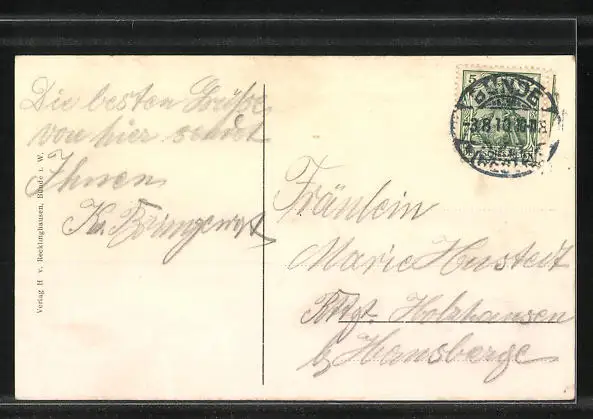 Die besten Grüße
von hier sendet
Ihnen
K.
Verlag H v. Recklinghausen, Bünde i. W.
5
BÜNDE
-3.8.10.10-11
(WESTF.)
Fräulein
Marie Hustedt
Rttgt. Holzhausen
b/ Hausberge